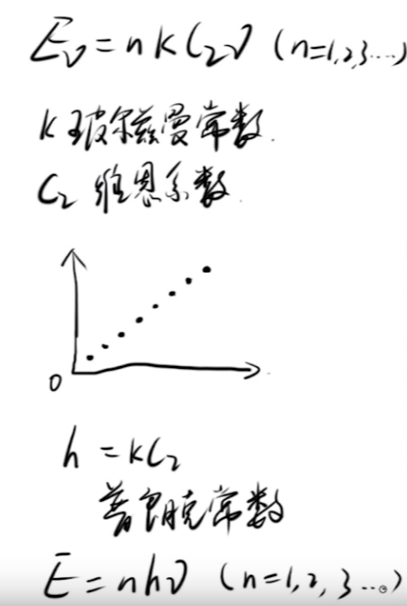 Eν=nkC₂ν (n=1,2,3...)
k 玻尔兹曼常数.
C₂ 维恩系数
0
h=kC₂
普朗克常数
E=nhν (n=1,2,3...)